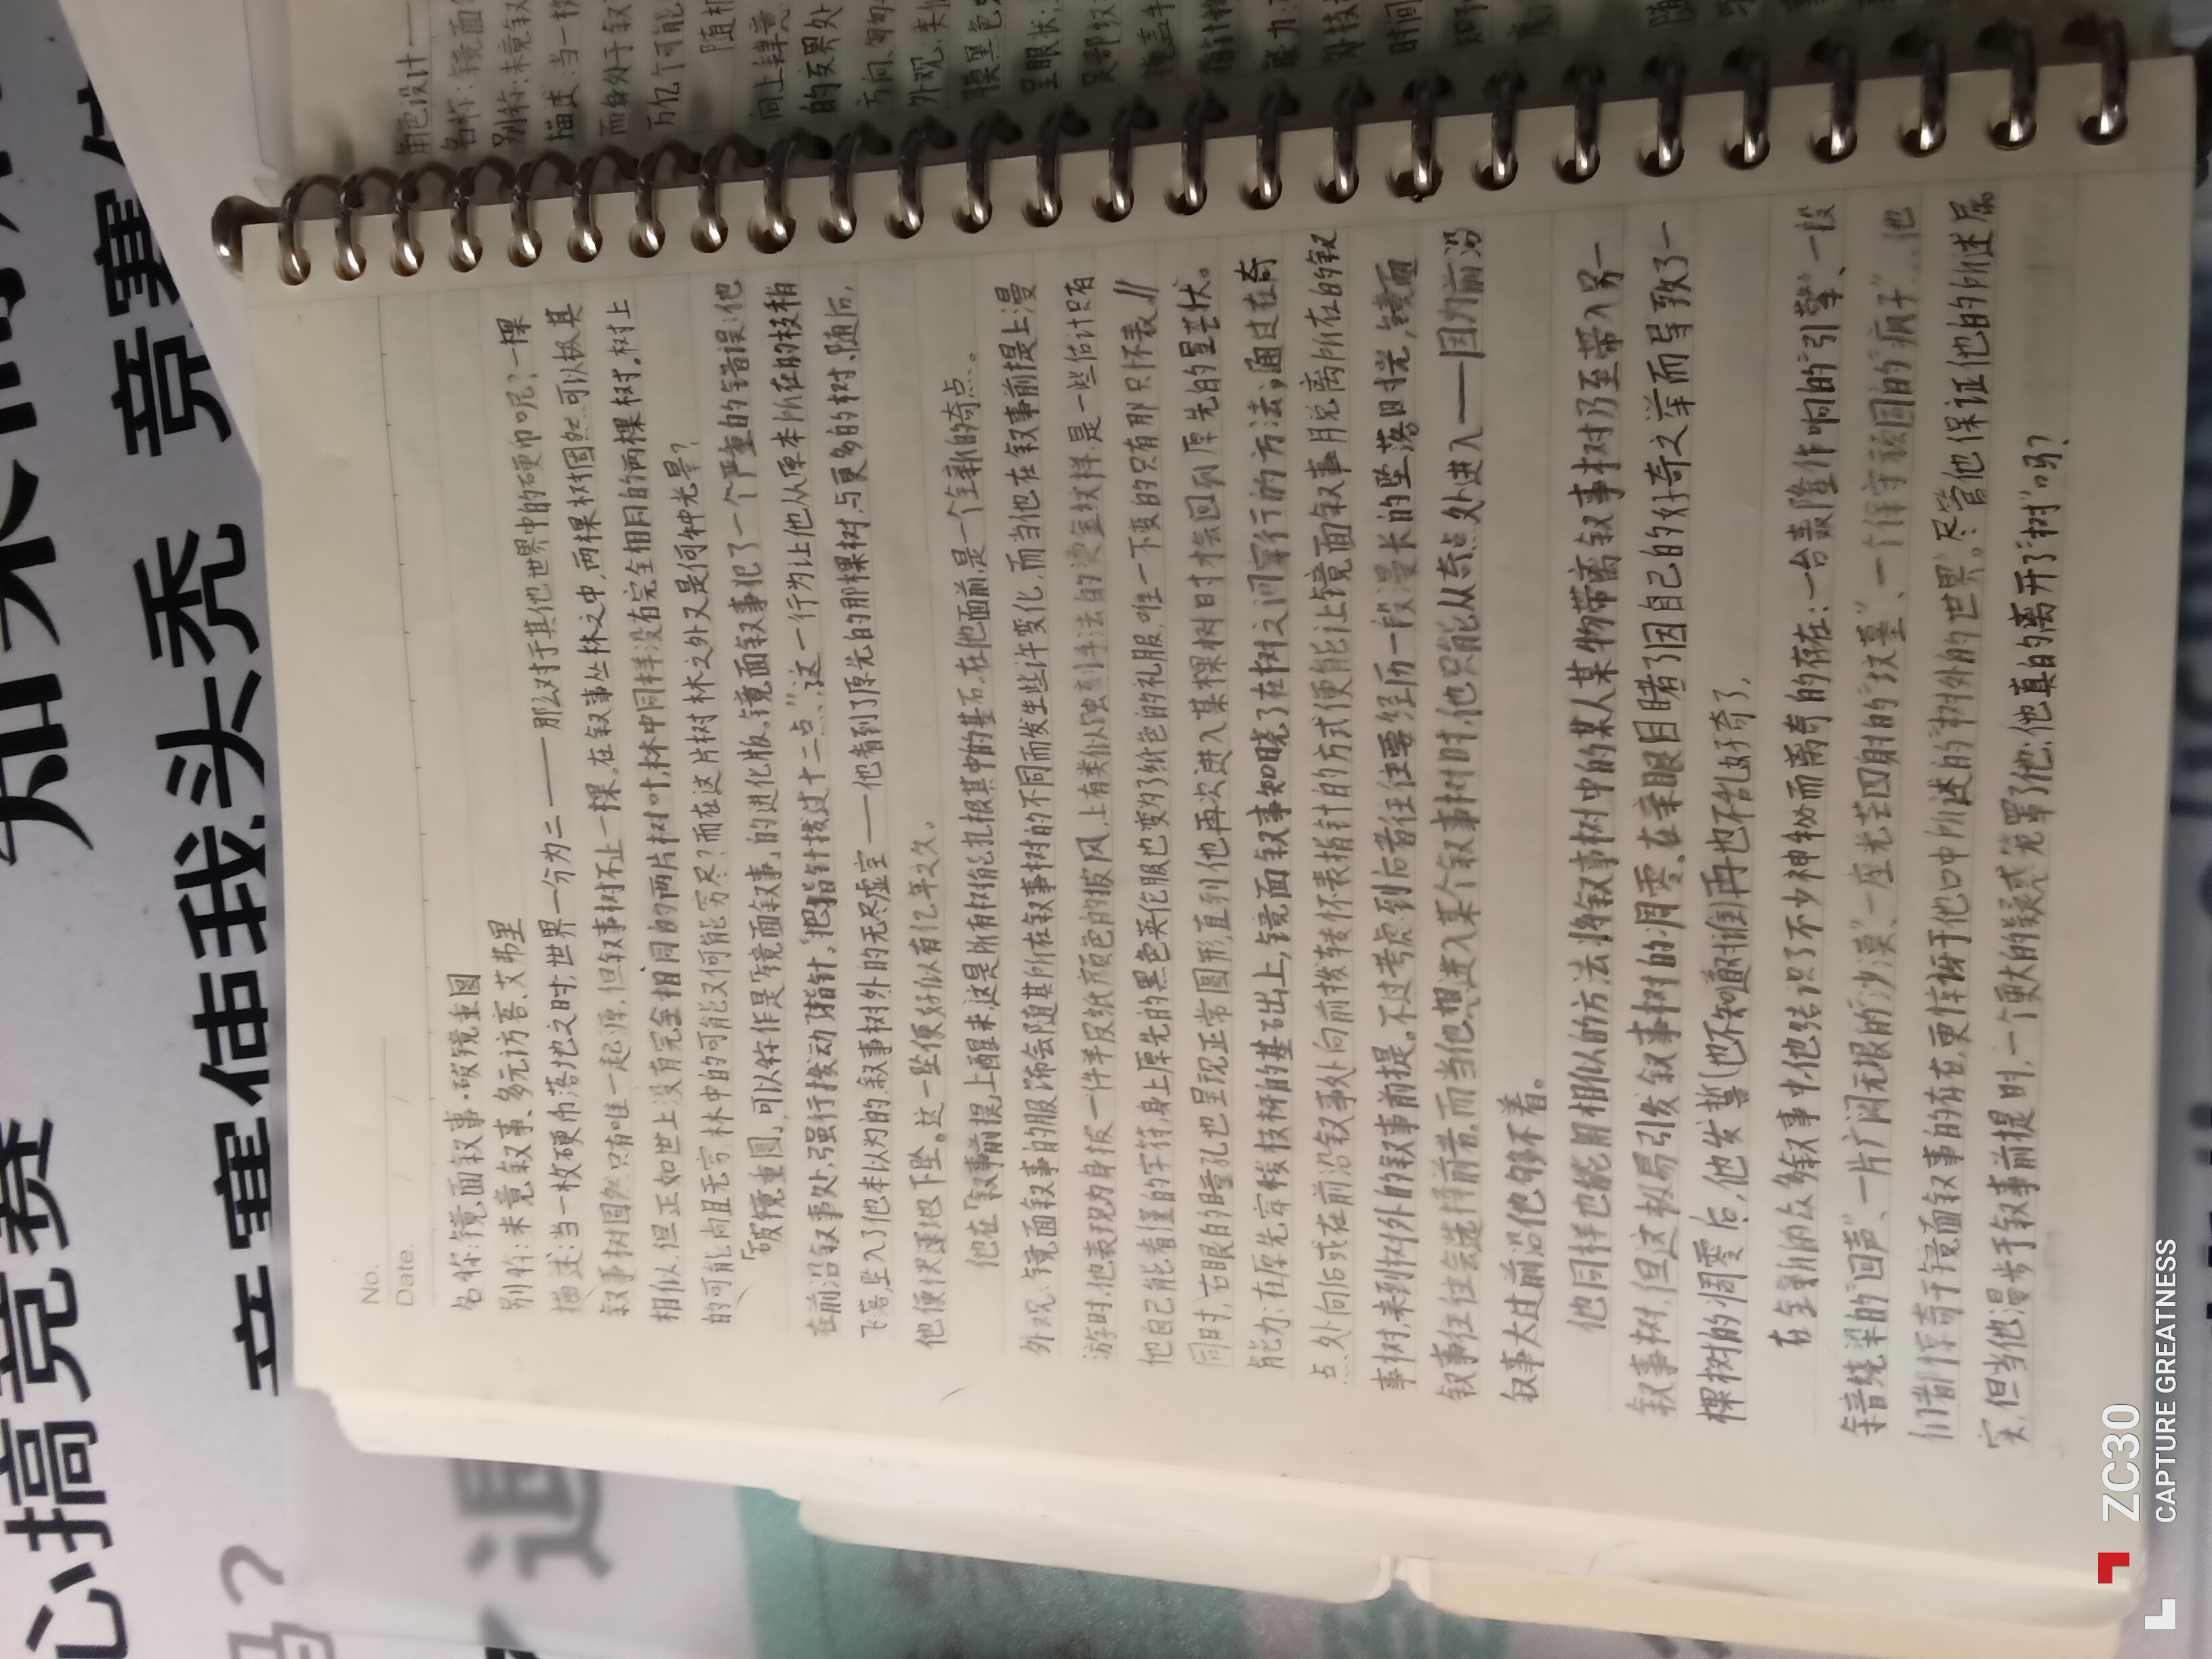 No.
Date.
名称:镜面叙事·破镜重圆
别称:未竟叙事、多元访客、艾弗里
描述:当一枚硬币落地之时,世界一分为二——那么对于其他世界中的硬币呢?一棵
叙事树固然只有唯一起源,但叙事树不止一棵。在叙事丛林之中,两棵树固然可以极其
相似,但正如世上没有完全相同的两片树叶,林中同样没有完全相同的两棵树。树上
的可能尚且无穷,林中的可能又何能穷尽?而在这片树林之外又是何种光景?
「破镜重圆」,可以称作是「镜面叙事」的进化版。镜面叙事犯了一个严重的错误:他
在前沿叙事处,强行拨动了指针。"把指针拨过十二点",这一行为让他从原本所在的枝梢
飞落,坠入了他本以为的,叙事树外的无尽虚空——他看到了原先的那棵树,与更多的树,随后,
他便快速地下坠。这一坠便好似有亿年之久。
他在「叙事前提」上醒来,这是所有树能扎根其中的基石,在他面前,是一个全新的奇点。
外观:镜面叙事的服饰会随其所在叙事树的不同而发生些许变化,而当他在叙事前提上漫
游时,他表现为身披一件羊皮纸颜色的披风,上有类似蚀刻手法的烫金纹样,是一些估计只有
他自己能看懂的字符,身上原先的黑色英伦服也变为了纸色的礼服,唯一不变的只有那只怀表。
同时,右眼的瞳孔也呈现正常圆形,直到他再次进入某棵树时才会回到原先的星芒状。
能力:在原先穿梭枝桠的基础上,镜面叙事知晓了在树之间穿行的方法;通过在奇
点处向后或在前沿叙事处向前拨转怀表指针的方式便能让镜面叙事脱离所在的叙
事树,来到树外的叙事前提。不过考虑到后者往往要经历一段漫长的坠落时光,镜面
叙事往往会选择前者,而当他想进入某个叙事树时,他只能从奇点处进入——因为前沿
叙事太过前沿他够不着。
他同样也能用相似的方法将叙事树中的某人某物带离叙事树乃至带入另一
叙事树,但这极易引发叙事树的凋零,在亲眼目睹了因自己的好奇之举而导致了一
棵树的凋零后,他发誓(也不知道对谁)再也不乱好奇了。
在全新的众多叙事中,他结识了不少神秘而离奇的存在:一台轰隆作响的"引擎"、一段
余音绕梁的"回声"、一片广阔无垠的"沙漠"、一座光芒四射的"坟墓"、一个保守顽固的"疯子"…他
们都惊奇于镜面叙事的存在,更惊讶于他口中所述的"树外的世界"。尽管他保证他的所述属
实,但当他漫步于叙事前提时,一个更大的疑惑笼罩了他:他真的离开了"树"吗?
角色设计——
名称:镜面
别称:未竟叙
描述:当一枚
而身处于叙
万亿个可能
随机
向上肆意
的友界处
外观:类似
呈眼状
能力:
时间
心搞竞赛
知来
竞赛使我头秃
ZC30
CAPTURE GREATNESS